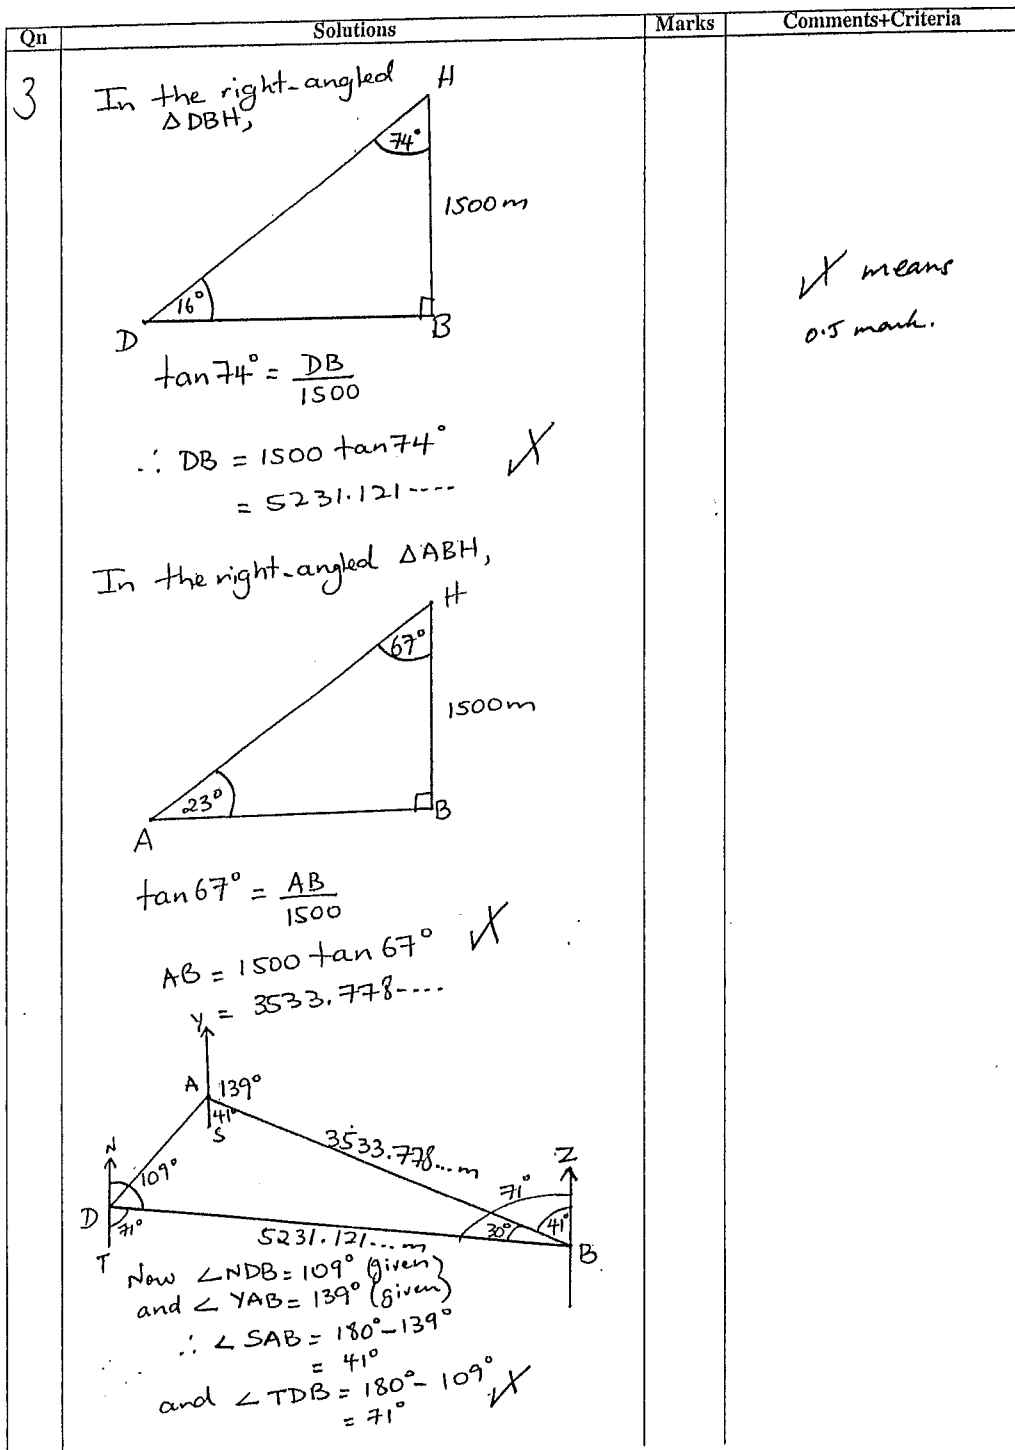 Qn Solutions Marks Comments+Criteria
3 In the right-angled
△DBH,
H
74°
1500m
16°
D B
✓× means
0.5 mark.
tan74° = DB/1500
∴ DB = 1500 tan74° ✓×
= 5231.121----
In the right-angled △ABH,
H
67°
1500m
23°
A B
tan67° = AB/1500
AB = 1500 tan67° ✓×
= 3533.778----
Y
A 139°
41°
S
3533.778...m
N Z
109° 71°
D 71° 30° 41°
5231.121...m B
T
Now ∠NDB = 109° (given)
and ∠YAB = 139° (given)
∴ ∠SAB = 180°-139°
= 41°
and ∠TDB = 180°- 109° ✓×
= 71°